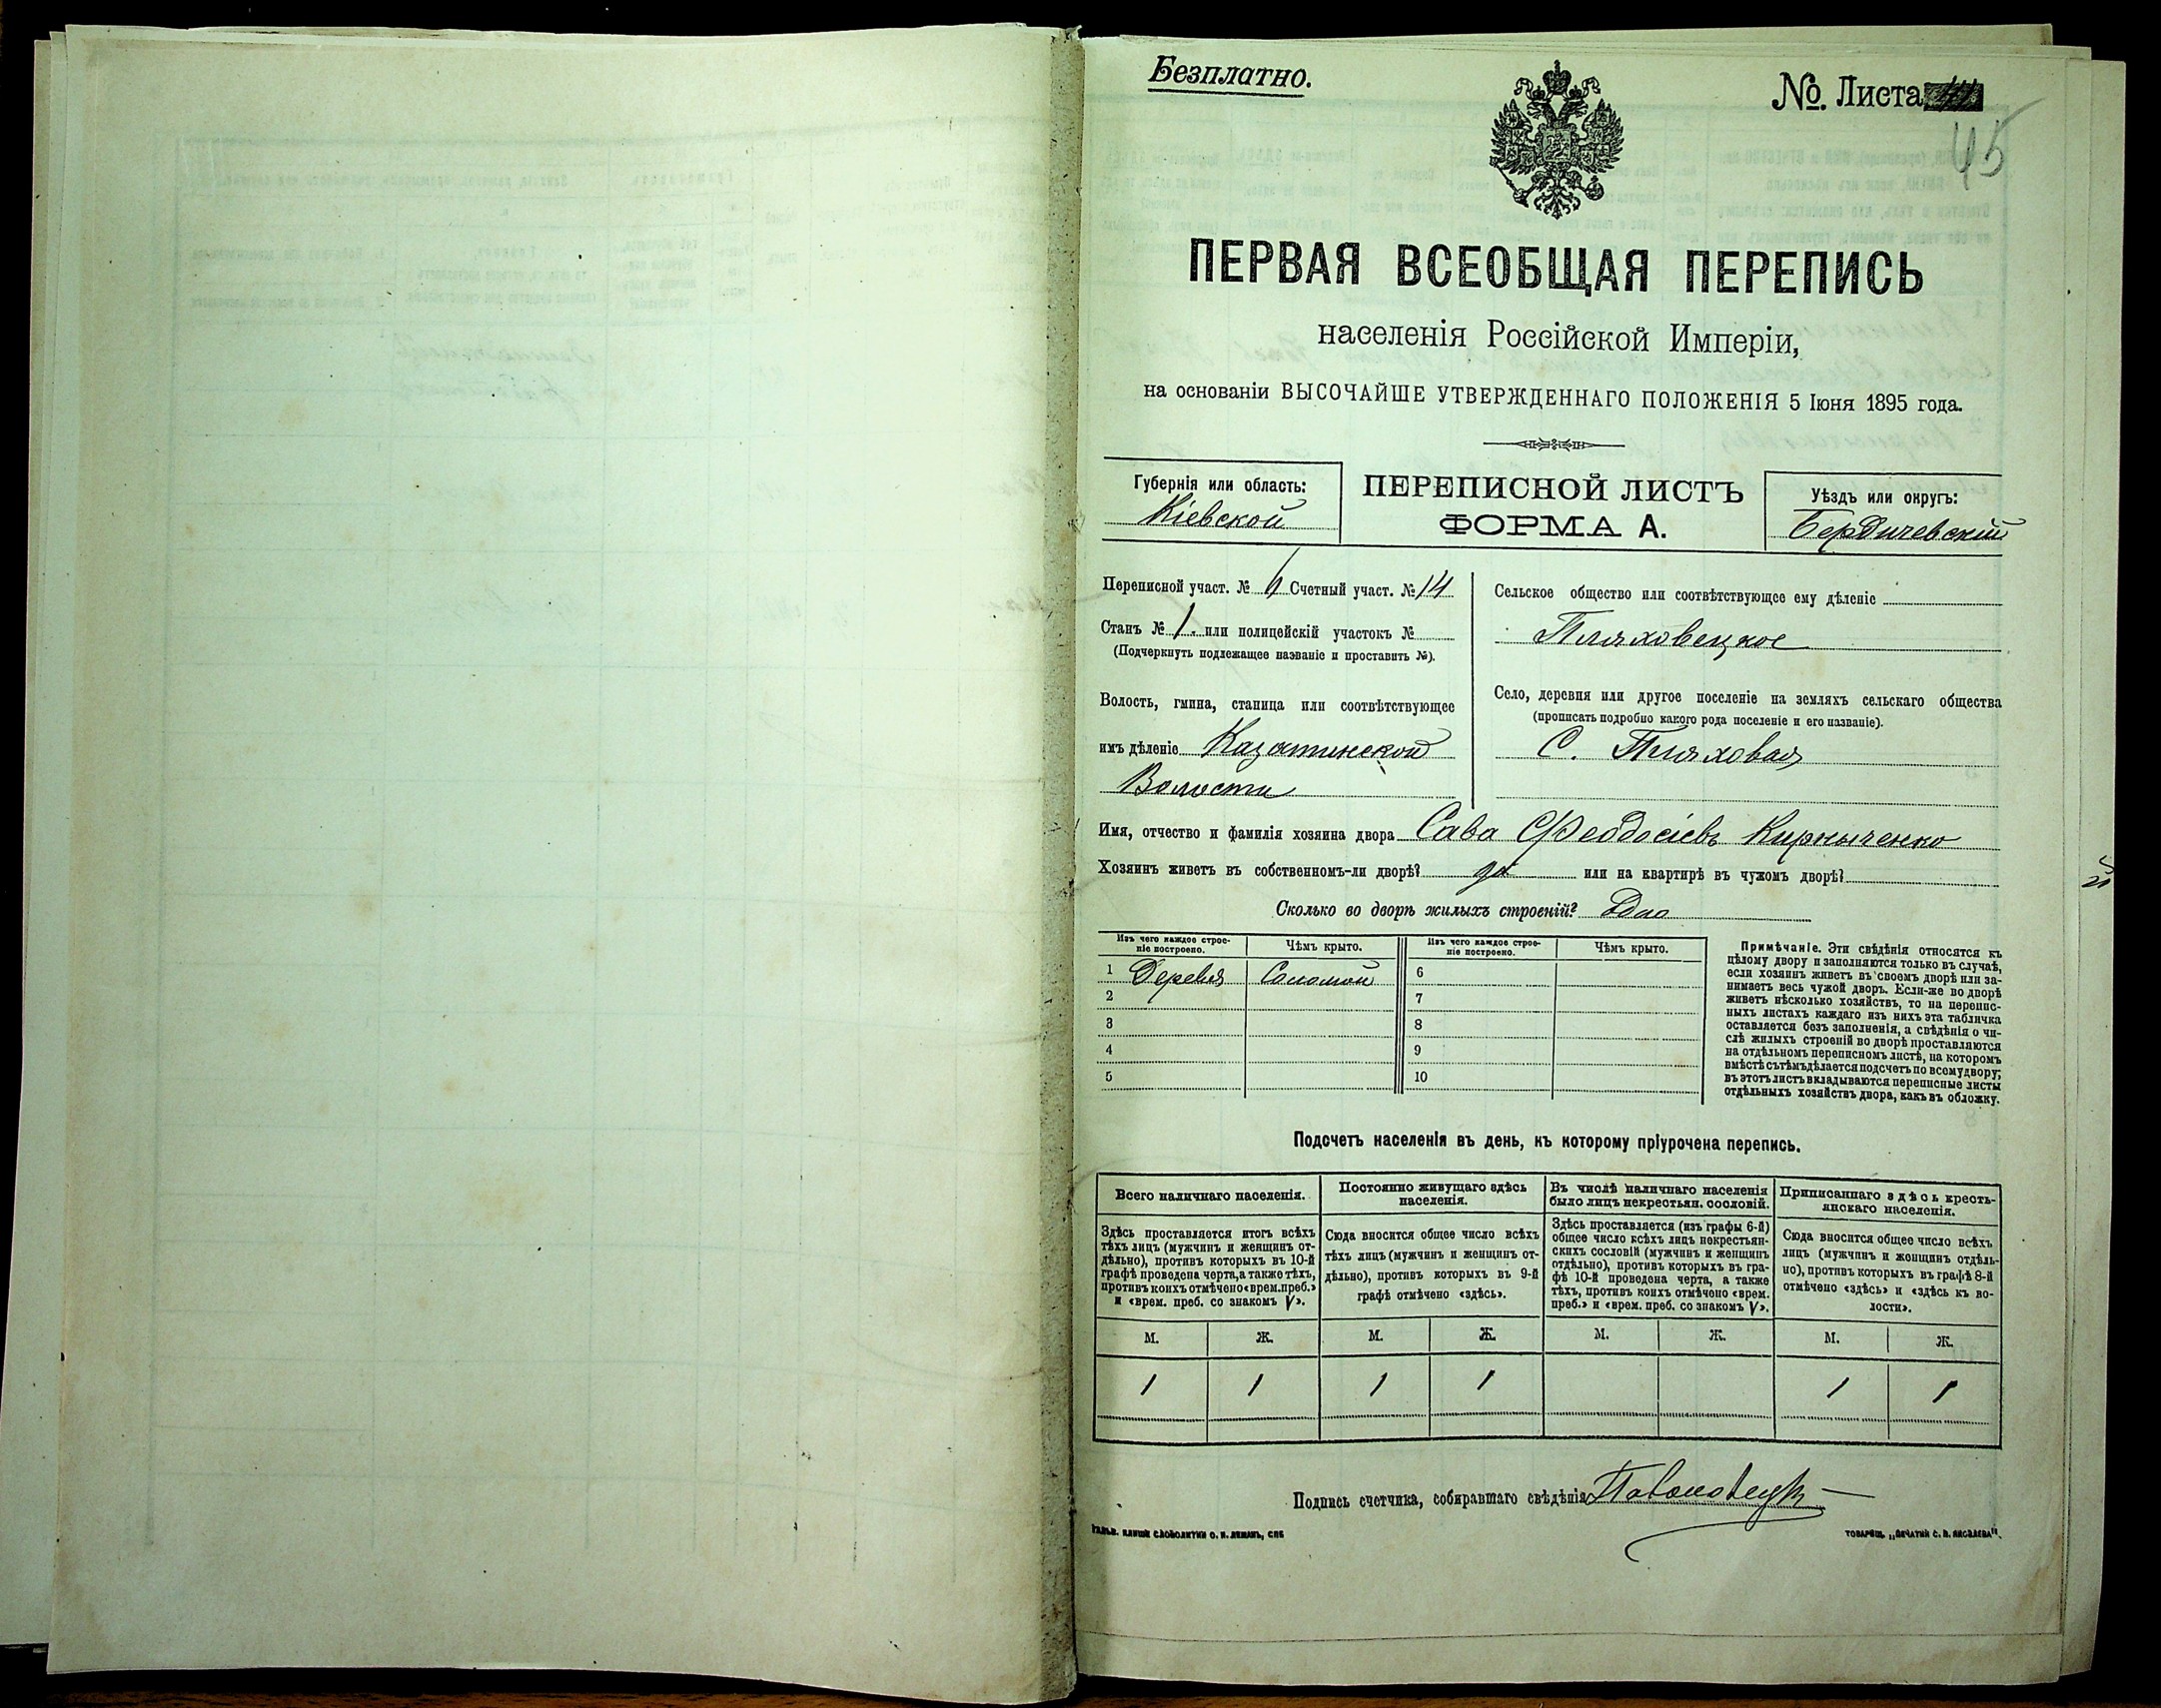 Безплатно.
№ Листа
45
ПЕРВАЯ ВСЕОБЩАЯ ПЕРЕПИСЬ
населенія Россійской Имперіи,
на основаніи ВЫСОЧАЙШЕ УТВЕРЖДЕННАГО ПОЛОЖЕНІЯ 5 Іюня 1895 года.
Губернія или область:
Кіевской
ПЕРЕПИСНОЙ ЛИСТЪ
ФОРМА А.
Уѣздъ или округъ:
Бердичевскій
Переписной участ. № Счетный участ. № 14
Станъ № 1. или полицейскій участокъ №
(Подчеркнуть подлежащее названіе и проставить №).
Волость, гмина, станица или соотвѣтствующее
имъ дѣленіе Казатинской
Волости
Сельское общество или соотвѣтствующее ему дѣленіе
Пляховецкое
Село, деревня или другое поселеніе на земляхъ сельскаго общества
(прописать подробно какого рода поселеніе и его названіе).
С. Пляховая
Имя, отчество и фамилія хозяина двора Сава Феодосіевъ Кирныченко
Хозяинъ живетъ въ собственномъ-ли дворѣ? да или на квартирѣ въ чужомъ дворѣ?
Сколько во дворѣ жилыхъ строеній? Одно
Изъ чего каждое строе-
ніе построено.
Чѣмъ крыто.
Изъ чего каждое строе-
ніе построено.
Чѣмъ крыто.
1 Деревя Соломой 6
2 7
3 8
4 9
5 10
Примѣчаніе. Эти свѣдѣнія относятся къ
цѣлому двору и заполняются только въ случаѣ,
если хозяинъ живетъ въ своемъ дворѣ или за-
нимаетъ весь чужой дворъ. Если-же во дворѣ
живетъ нѣсколько хозяйствъ, то на перепис-
ныхъ листахъ каждаго изъ нихъ эта табличка
оставляется безъ заполненія, а свѣдѣнія о чи-
слѣ жилыхъ строеній во дворѣ проставляются
на отдѣльномъ переписномъ листѣ, на которомъ
вмѣстѣ съ тѣмъ дѣлается подсчетъ по всему двору;
въ этотъ листъ вкладываются переписные листы
отдѣльныхъ хозяйствъ двора, какъ въ обложку.
Подсчетъ населенія въ день, къ которому пріурочена перепись.
Всего наличнаго населенія.
Здѣсь проставляется итогъ всѣхъ
тѣхъ лицъ (мужчинъ и женщинъ от-
дѣльно), противъ которыхъ въ 10-й
графѣ проведена черта, а также тѣхъ,
противъ коихъ отмѣчено «врем. преб.»
и «врем. преб. со знакомъ V».
Постоянно живущаго здѣсь
населенія.
Сюда вносится общее число всѣхъ
тѣхъ лицъ (мужчинъ и женщинъ от-
дѣльно), противъ которыхъ въ 9-й
графѣ отмѣчено «здѣсь».
Въ числѣ наличнаго населенія
было лицъ некрестьян. сословій.
Здѣсь проставляется (изъ графы 6-й)
общее число всѣхъ лицъ некрестьян-
скихъ сословій (мужчинъ и женщинъ
отдѣльно), противъ которыхъ въ гра-
фѣ 10-й проведена черта, а также
тѣхъ, противъ коихъ отмѣчено «врем.
преб.» и «врем. преб. со знакомъ V».
Приписаннаго здѣсь кресть-
янскаго населенія.
Сюда вносится общее число всѣхъ
лицъ (мужчинъ и женщинъ отдѣль-
но), противъ которыхъ въ графѣ 8-й
отмѣчено «здѣсь» и «здѣсь въ во-
лости».
М. Ж. М. Ж. М. Ж. М. Ж.
1 1 1 1 1 1
Подпись счетчика, собиравшаго свѣдѣнія